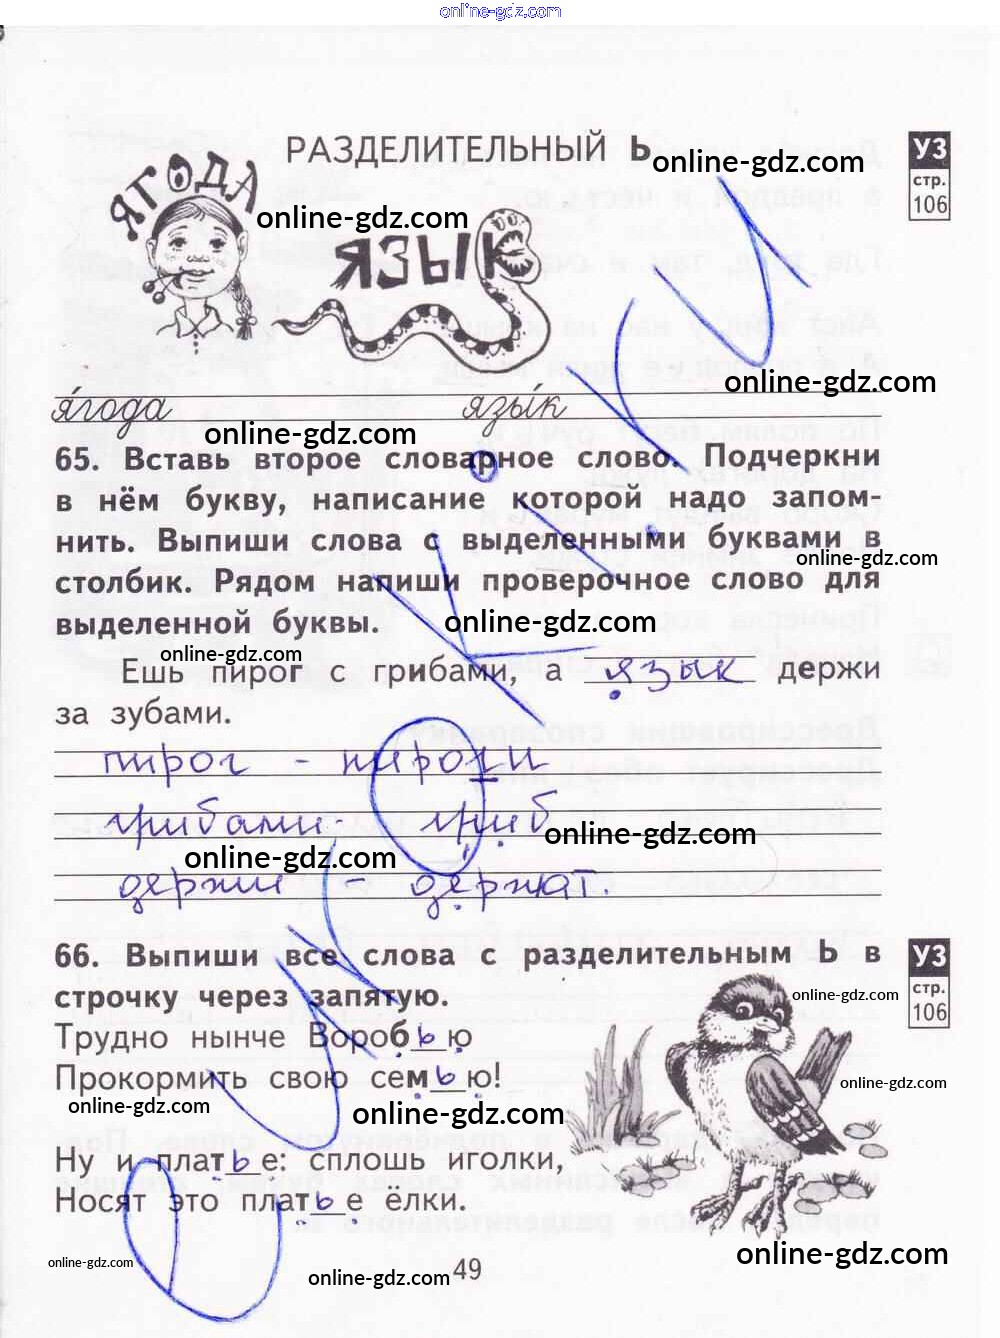 online-gdz.com
РАЗДЕЛИТЕЛЬНЫЙ Ь
online-gdz.com
УЗ
стр.
106
ЯГОДА
online-gdz.com
ЯЗЫК
online-gdz.com
я́года язы́к
online-gdz.com
65. Вставь второе словарное слово. Подчеркни
в нём букву, написание которой надо запом-
нить. Выпиши слова с выделенными буквами в
online-gdz.com
столбик. Рядом напиши проверочное слово для
выделенной буквы.
online-gdz.com
online-gdz.com
Ешь пирог с грибами, а язык держи
за зубами.
пирог - пироги
грибами - гриб
online-gdz.com
online-gdz.com
держи - держат.
66. Выпиши все слова с разделительным Ь в
строчку через запятую.
УЗ
стр.
106
online-gdz.com
Трудно нынче Воробью
Прокормить свою семью!
online-gdz.com
online-gdz.com
online-gdz.com
Ну и платье: сплошь иголки,
Носят это платье ёлки.
online-gdz.com
online-gdz.com
online-gdz.com
49